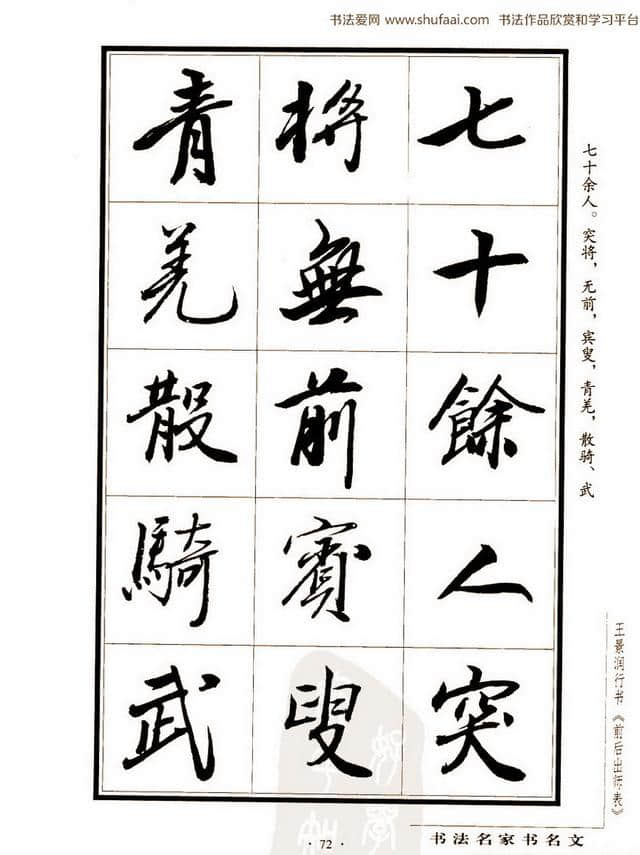 书法爱网 www.shufaai.com 书法作品欣赏和学习平台
七十餘人突
將無前賨叟
青羌散騎武
七十余人。突将，无前，賨叟，青羌，散骑、武
王景润行书《前后出师表》
·72·
书法名家书名文